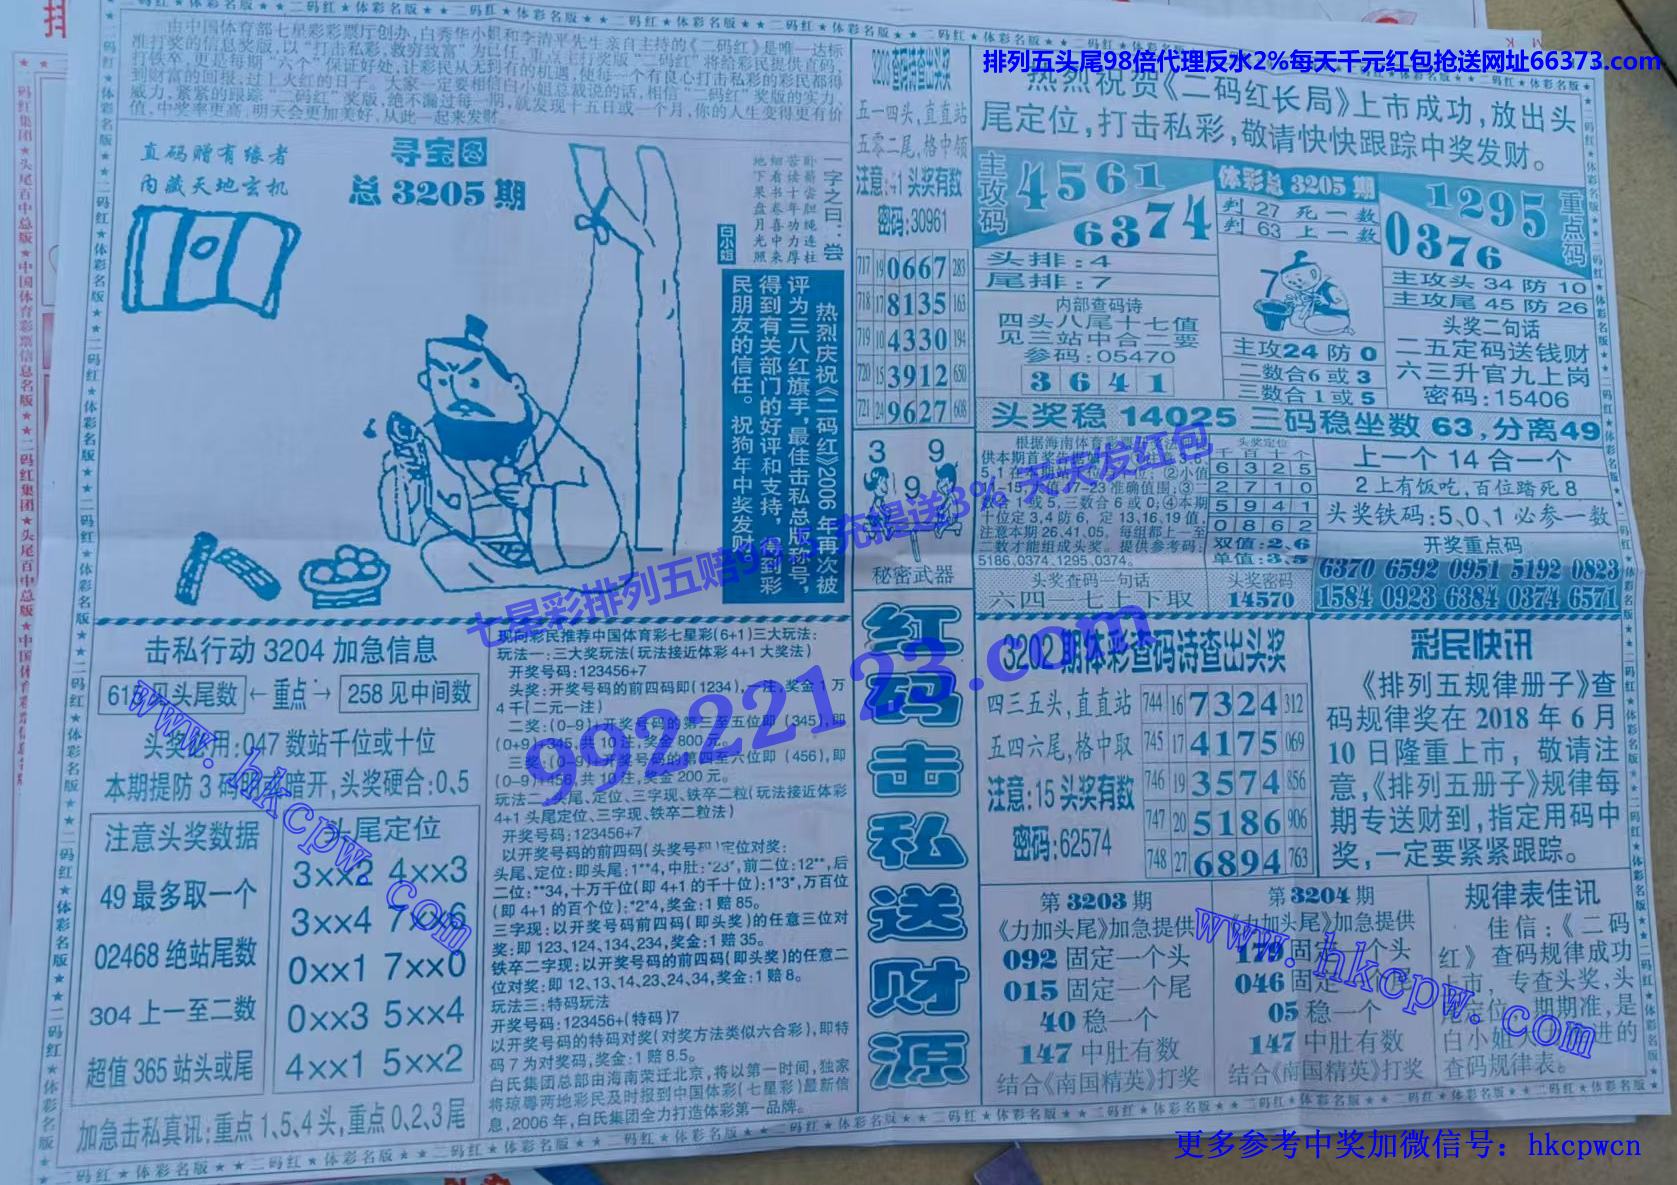 排列五头尾98倍代理反水2%每天千元红包抢送网址66373.com
由中国体育部七星彩彩票厅创办，白秀华小姐和李清平先生亲自主持的《二码红》是唯一达标
值，中奖率更高，明天会更加美好，从此一起来发财。
直码赠有缘者
内藏天地玄机
寻宝图
总3205期
一字之曰：尝
卧薪尝胆纯连柱
苦读十年功力厚
细看书卷喜中来
地下果盘月光照
白小姐
热烈庆祝《二码红》2006年再次被
评为三八红旗手，最佳击私总版称号，
得到有关部门的好评和支持，得到彩
民朋友的信任。祝狗年中奖发财
五一四头，直直站
五零二尾，格中领
注意:41头奖有数
密码:30961
717 19 0667 283
718 17 8135 163
719 10 4330 194
720 15 3912 650
721 24 9627 608
3 9
9
秘密武器
红码击私送财源
热烈祝贺《二码红长局》上市成功，放出头
尾定位，打击私彩，敬请快快跟踪中奖发财。
主攻码
4561
6374
体彩总3205期
判27死一数
判63上一数
1295
0376
重点码
头排:4
尾排:7
内部查码诗
四头八尾十七值
见三站中合二要
参码:05470
3641
7
主攻24防0
二数合6或3
三数合1或5
主攻头34防10
主攻尾45防26
头奖二句话
二五定码送钱财
六三升官九上岗
密码:15406
头奖稳14025三码稳坐数63,分离49
十位定3,4防6，定13,16,19值，
注意本期26,41,05，每组都上一至
二数才能组成头奖。提供参考码:
5186,0374,1295,0374。
头奖定位
千百十个
6325
2710
5941
0862
双值:2、6
单值:3、5
上一个14合一个
2上有饭吃,百位踏死8
头奖铁码:5、0、1必参一数
开奖重点码
6370 6592 0951 5192 0823
1584 0923 6384 0374 6571
头奖查码一句话
六四一七上下取
头奖密码
14570
七星彩排列五赔99.5 充提送3% 天天发红包
99222123.com
www.hkcpw.com
www.hkcpw.com
击私行动3204加急信息
615见头尾数 ←重点→ 258见中间数
头奖必用:047数站千位或十位
本期提防3码明或暗开,头奖硬合:0、5
注意头奖数据
49最多取一个
02468绝站尾数
304上一至二数
超值365站头或尾
头尾定位
3××2 4××3
3××4 7××6
0××1 7××0
0××3 5××4
4××1 5××2
加急击私真讯:重点1、5、4头,重点0、2、3尾
现向彩民推荐中国体育彩七星彩(6+1)三大玩法:
玩法一:三大奖玩法(玩法接近体彩4+1大奖法)
开奖号码:123456+7
头奖:开奖号码的前四码即(1234)，一注,奖金1万
4千(二元一注)
二奖:(0–9)+开奖号码的第三至五位即(345),即
(0+9)+345,共10注,奖金800元。
三奖:(0–9)+开奖号码的第四至六位即(456),即
(0–9)+456,共10注,奖金200元。
玩法二:头尾、定位、三字现、铁卒二粒(玩法接近体彩
4+1头尾定位、三字现、铁卒二粒法)
开奖号码:123456+7
以开奖号码的前四码(头奖号码)定位对奖:
头尾、定位:即头尾:1**4,中肚:*23*,前二位:12**,后
二位:**34,十万千位(即4+1的千十位):1*3*,万百位
(即4+1的百个位):*2*4,奖金:1赔85。
三字现:以开奖号码前四码(即头奖)的任意三位对
奖:即123、124、134、234,奖金:1赔35。
铁卒二字现:以开奖号码的前四码(即头奖)的任意二
位对奖:即12、13、14、23、24、34,奖金:1赔8。
玩法三:特码玩法
开奖号码:123456+(特码)7
以开奖号码的特码对奖(对奖方法类似六合彩),即特
码7为对奖码,奖金:1赔8.5。
白氏集团总部由海南荣迁北京,将以第一时间,独家
将琼粤两地彩民及时报到中国体彩(七星彩)最新信
息,2006年,白氏集团全力打造体彩第一品牌。
3202期体彩查码诗查出头奖
四三五头,直直站
五四六尾,格中取
注意:15头奖有数
密码:62574
744 16 7324 312
745 17 4175 069
746 19 3574 856
747 20 5186 906
748 27 6894 763
彩民快讯
《排列五规律册子》查
码规律奖在2018年6月
10日隆重上市，敬请注
意，《排列五册子》规律每
期专送财到，指定用码中
奖，一定要紧紧跟踪。
第3203期
《力加头尾》加急提供
092固定一个头
015固定一个尾
40稳一个
147中肚有数
结合《南国精英》打奖
第3204期
《力加头尾》加急提供
179固定一个头
046固定一个尾
05稳一个
147中肚有数
结合《南国精英》打奖
规律表佳讯
佳信:《二码
红》查码规律成功
上市，专查头奖，头
尾定位，期期准，是
查码规律表。
更多参考中奖加微信号：hkcpwcn